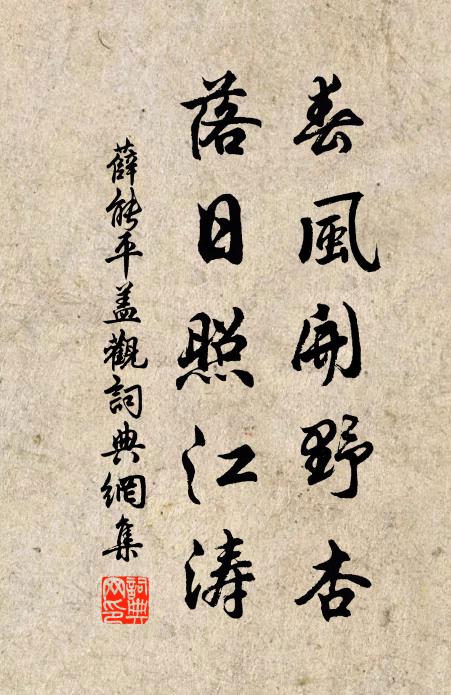 春風開野杏
落日照江濤
薛能平蓋觀詞典網集
詞典网印